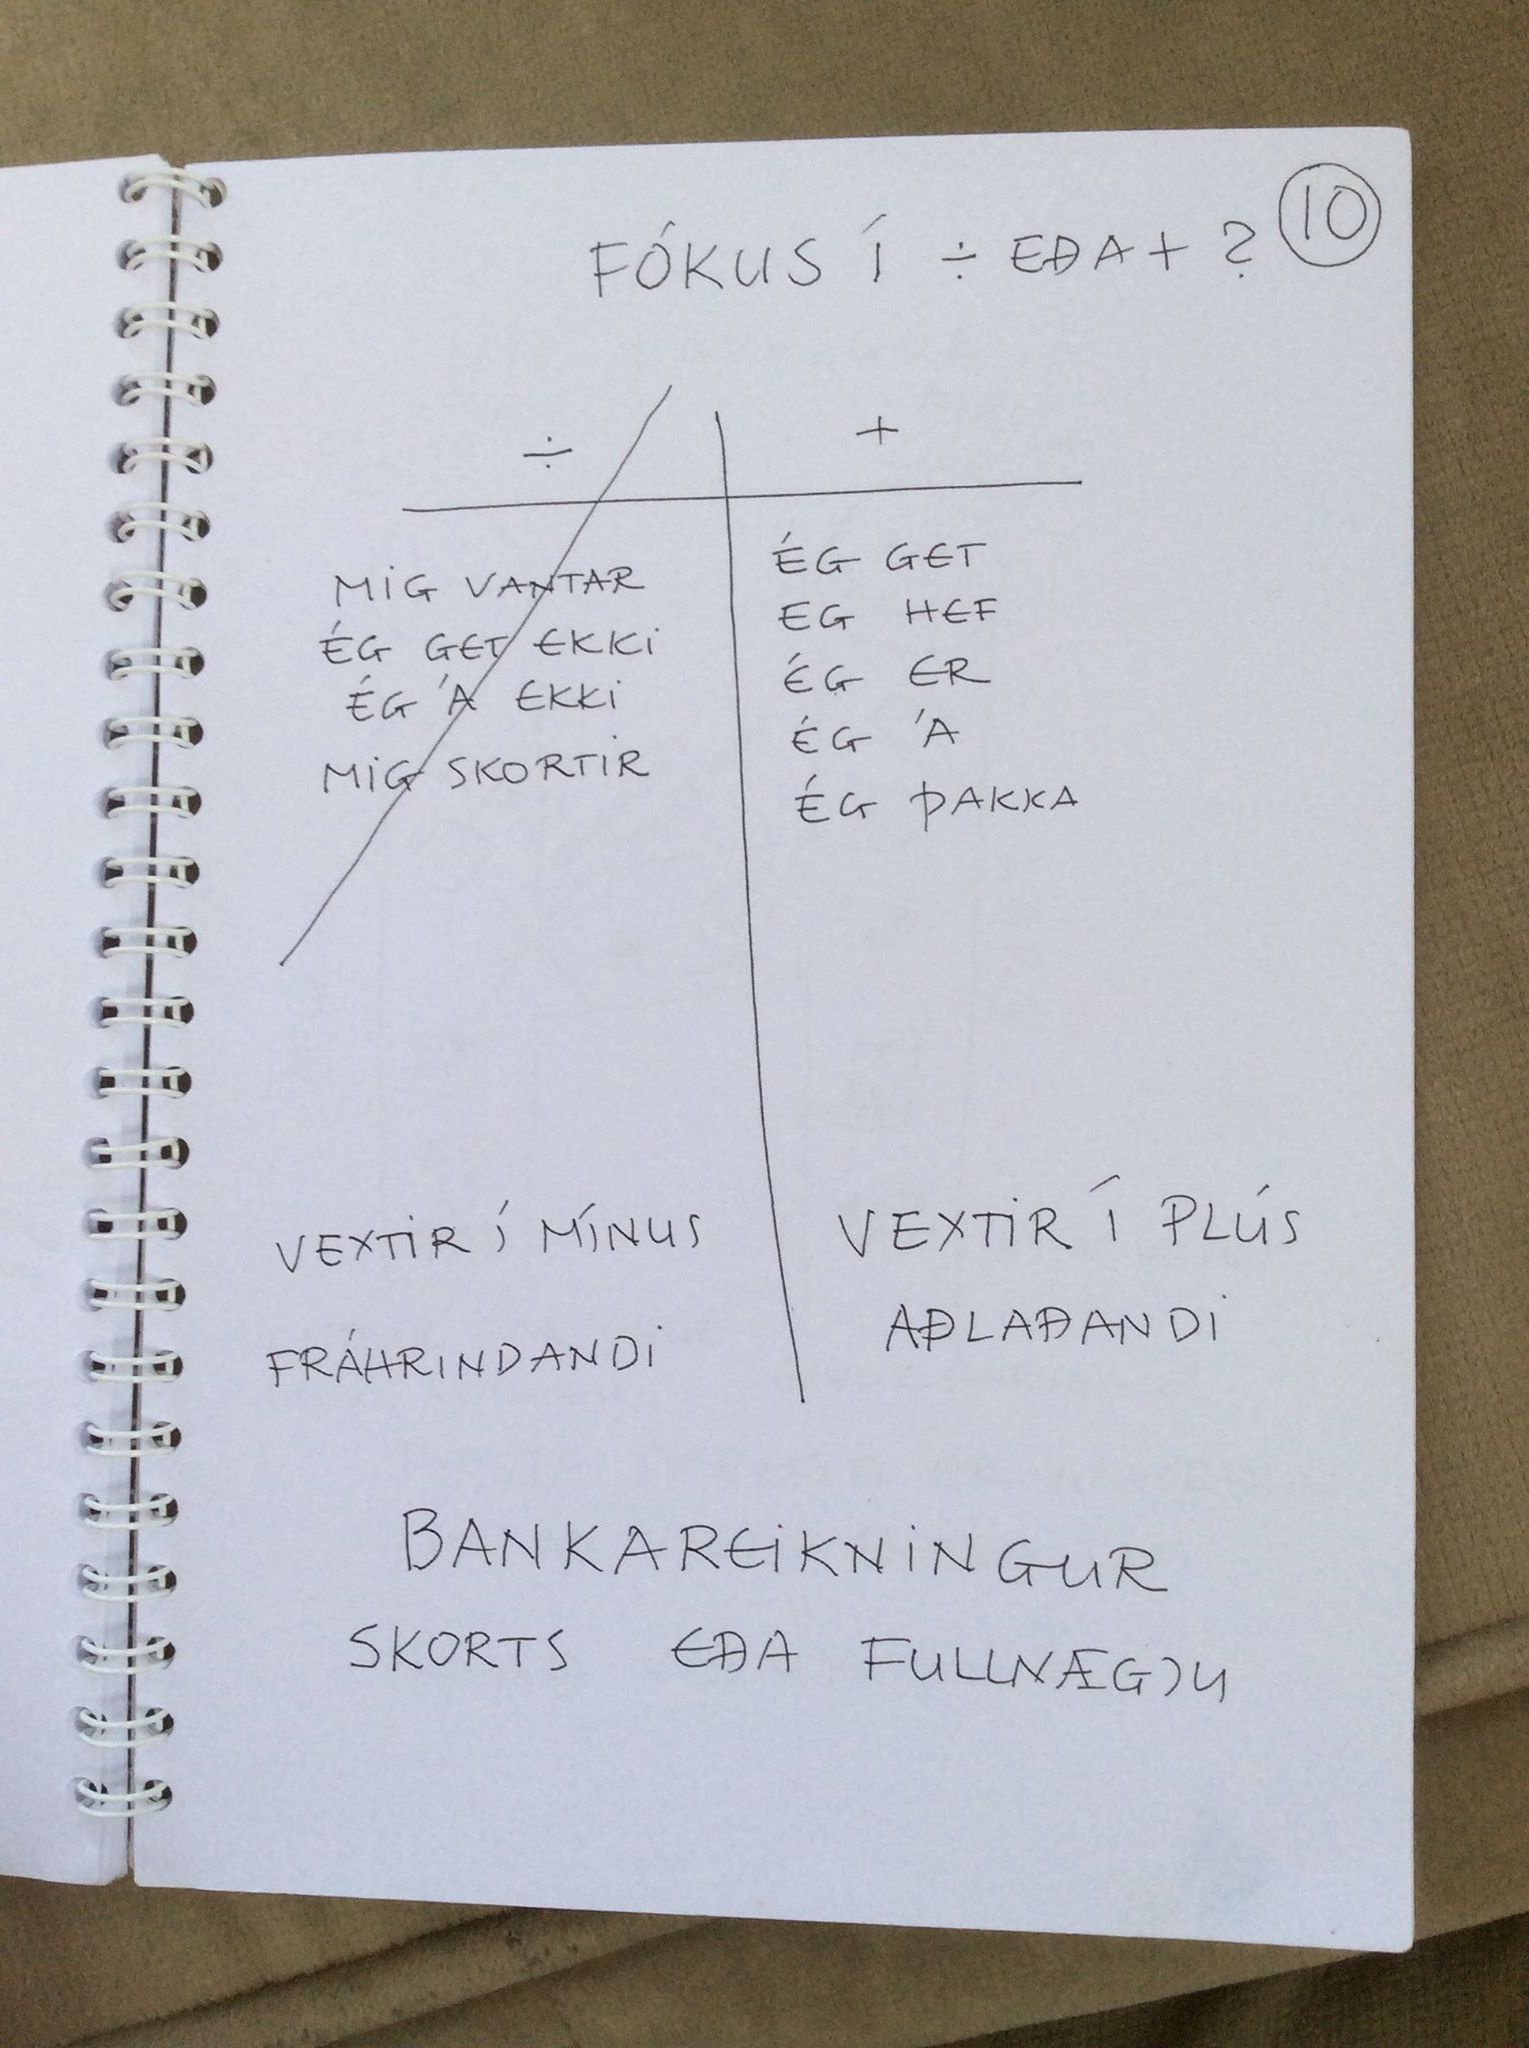 10
FÓKUS Í ÷ EÐA + ?
÷
MIG VANTAR
ÉG GET EKKI
ÉG Á EKKI
MIG SKORTIR
+
ÉG GET
EG HEF
ÉG ER
ÉG Á
ÉG ÞAKKA
VEXTIR Í MÍNUS
FRÁHRINDANDI
VEXTIR Í PLÚS
AÐLAÐANDI
BANKAREIKNINGUR
SKORTS EÐA FULLNÆGJU